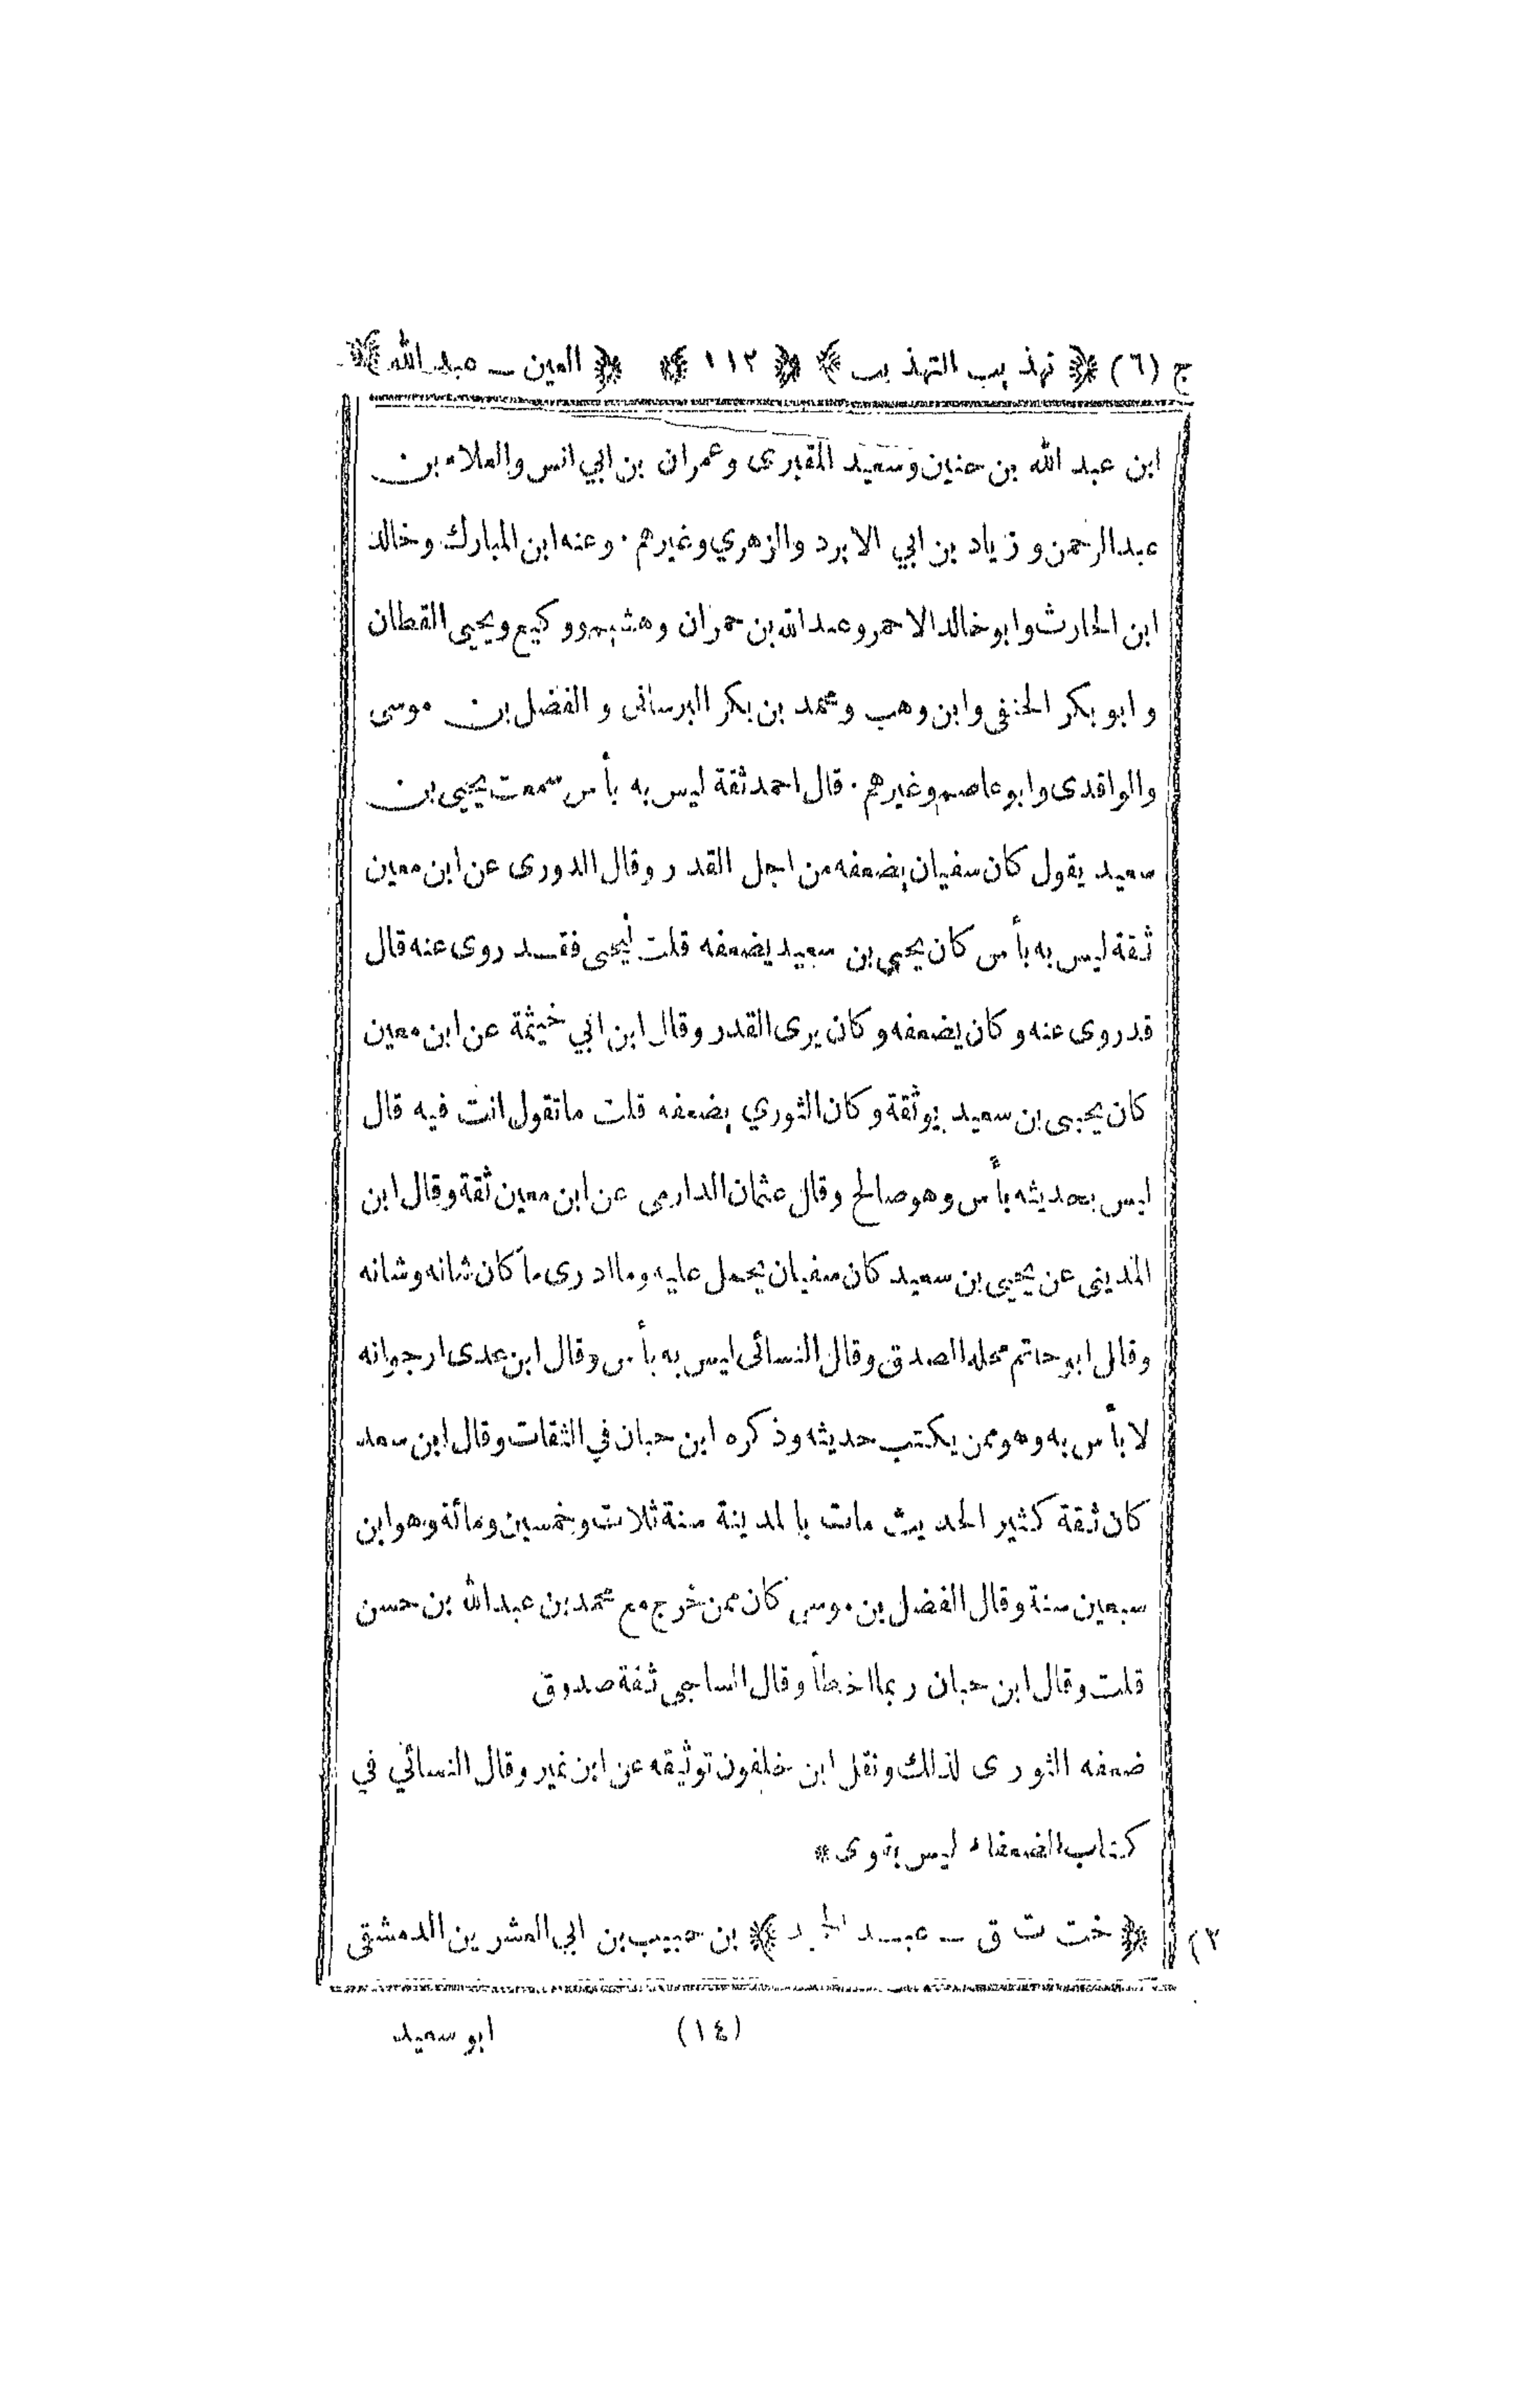 ج (٦) ﴿ تهذيب التهذيب ﴾ ﴿ ١١٢ ﴾ ﴿ العين ـ عبد الله ﴾
ابن عبد الله بن حنين وسعيد المقبرى وعمران بن ابي انس والعلاء بن
عبد الرحمن وزياد بن ابي الابرد والزهري وغيرهم . وعنه ابن المبارك وخالد
ابن الحارث وابو خالد الاحمر وعبد الله بن حمران وهشيم ووكيع ويحيى القطان
وابو بكر الحنفى وابن وهب ومحمد بن بكر البرسانى والفضل بن موسى
والواقدى وابو عاصم وغيرهم . قال احمد ثقة ليس به بأس سمعت يحيى بن
سعيد يقول كان سفيان يضعفه من اجل القدر وقال الدورى عن ابن معين
ثقة ليس به بأس كان يحيى بن سعيد يضعفه قلت ليحيى فقد روى عنه قال
قد روى عنه وكان يضعفه وكان يرى القدر وقال ابن ابي خيثمة عن ابن معين
كان يحيى بن سعيد يوثقة وكان الثوري يضعفه قلت ما تقول انت فيه قال
ليس بحديثه بأس وهو صالح وقال عثمان الدارمى عن ابن معين ثقة وقال ابن
المدينى عن يحيى بن سعيد كان سفيان يحمل عليه وما ادرى ما كان شانه وشانه
وقال ابو حاتم محله الصدق وقال النسائى ليس به بأس وقال ابن عدى ارجو انه
لا بأس به وهو ممن يكتب حديثه وذكره ابن حبان في الثقات وقال ابن سعد
كان ثقة كثير الحديث مات بالمدينة سنة ثلاث وخمسين ومائة وهو ابن
سبعين سنة وقال الفضل بن موسى كان ممن خرج مع محمد بن عبد الله بن حسن
قلت وقال ابن حبان ربما اخطأ وقال الساجي ثقة صدوق
ضعفه الثورى لذلك ونقل ابن خلفون توثيقه عن ابن نمير وقال النسائي في
كتاب الضعفاء ليس بقوى *
﴿ خت ت ق ـ عبد ﴾ بن حبيب بن ابي العشرين الدمشقى
(١٤)
ابو سعيد